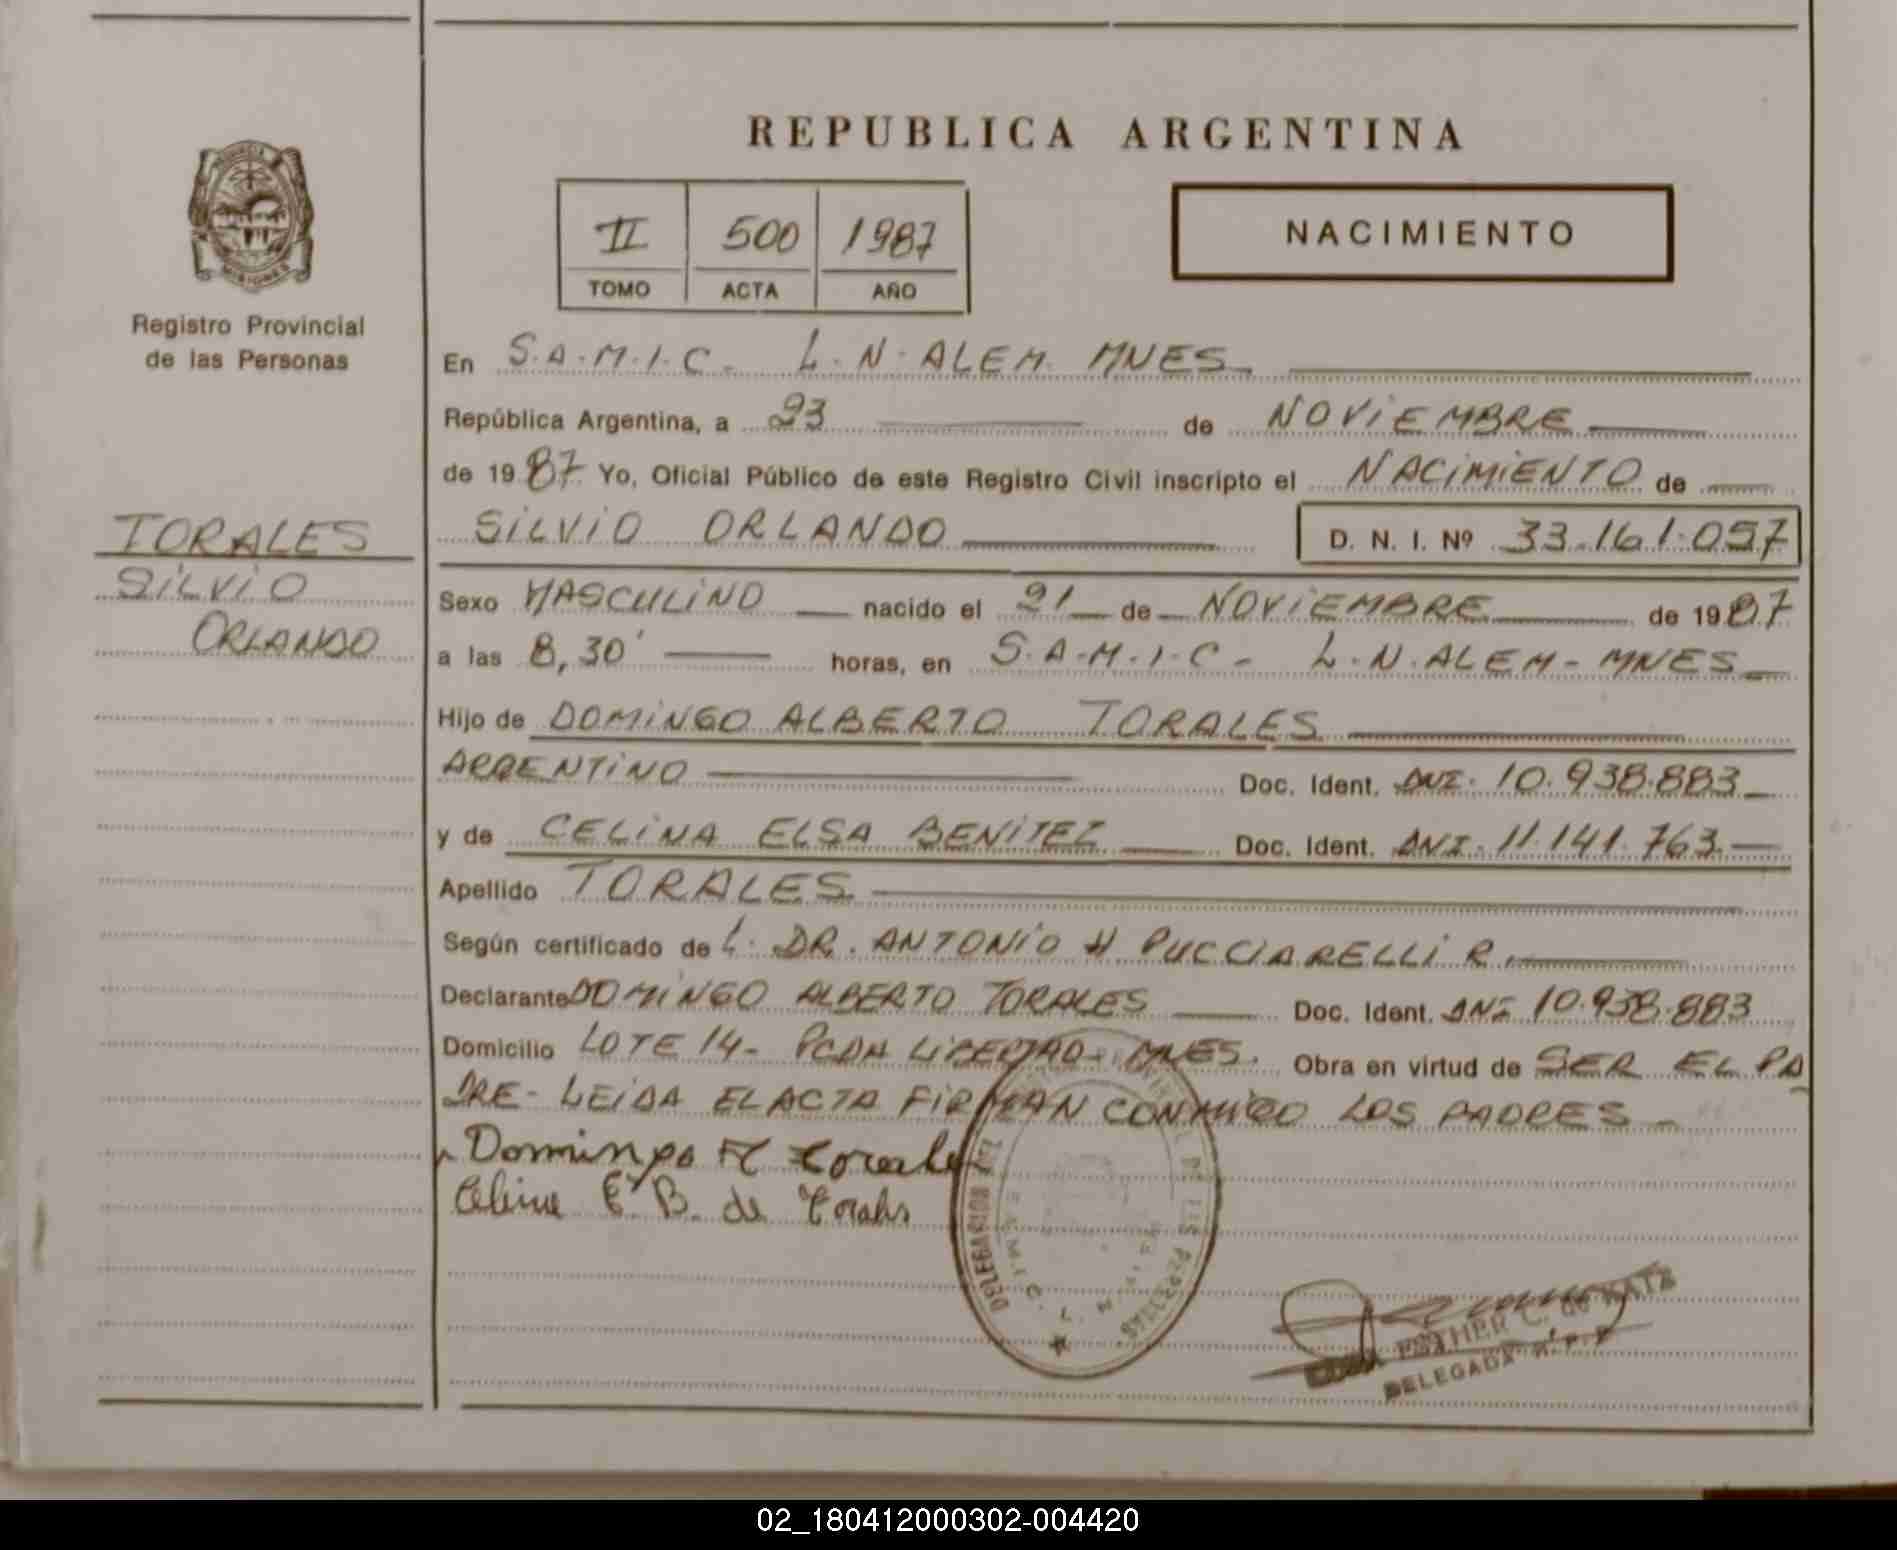 REPUBLICA ARGENTINA
II 500 1987
TOMO ACTA AÑO
NACIMIENTO
Registro Provincial
de las Personas
TORALES
SILVIO
ORLANDO
En S.A.M.I.C. L.N.ALEM. MNES
República Argentina, a 23 de NOVIEMBRE
de 1987 Yo, Oficial Público de este Registro Civil inscripto el NACIMIENTO de
SILVIO ORLANDO D. N. I. Nº 33.161.057
Sexo MASCULINO nacido el 21 de NOVIEMBRE de 1987
a las 8,30' horas, en S.A.M.I.C - L.N.ALEM - MNES
Hijo de DOMINGO ALBERTO TORALES
ARGENTINO Doc. Ident. DNI. 10.938.883
y de CELINA ELSA BENITEZ Doc. Ident. DNI. 11.141.763
Apellido TORALES
Según certificado de L. DR. ANTONIO H PUCCIARELLI R.
Declarante DOMINGO ALBERTO TORALES Doc. Ident. DNI 10.938.883
Domicilio LOTE 14- PCDA LIBERTAD - MNES. Obra en virtud de SER EL PA
DRE- LEIDA EL ACTA FIRMAN CONMIGO LOS PADRES
Domingo A Torales
Celina E B. de Torales
DELEGACION
ESTHER C. de KATZ
DELEGADA R.P.P.
02_180412000302-004420